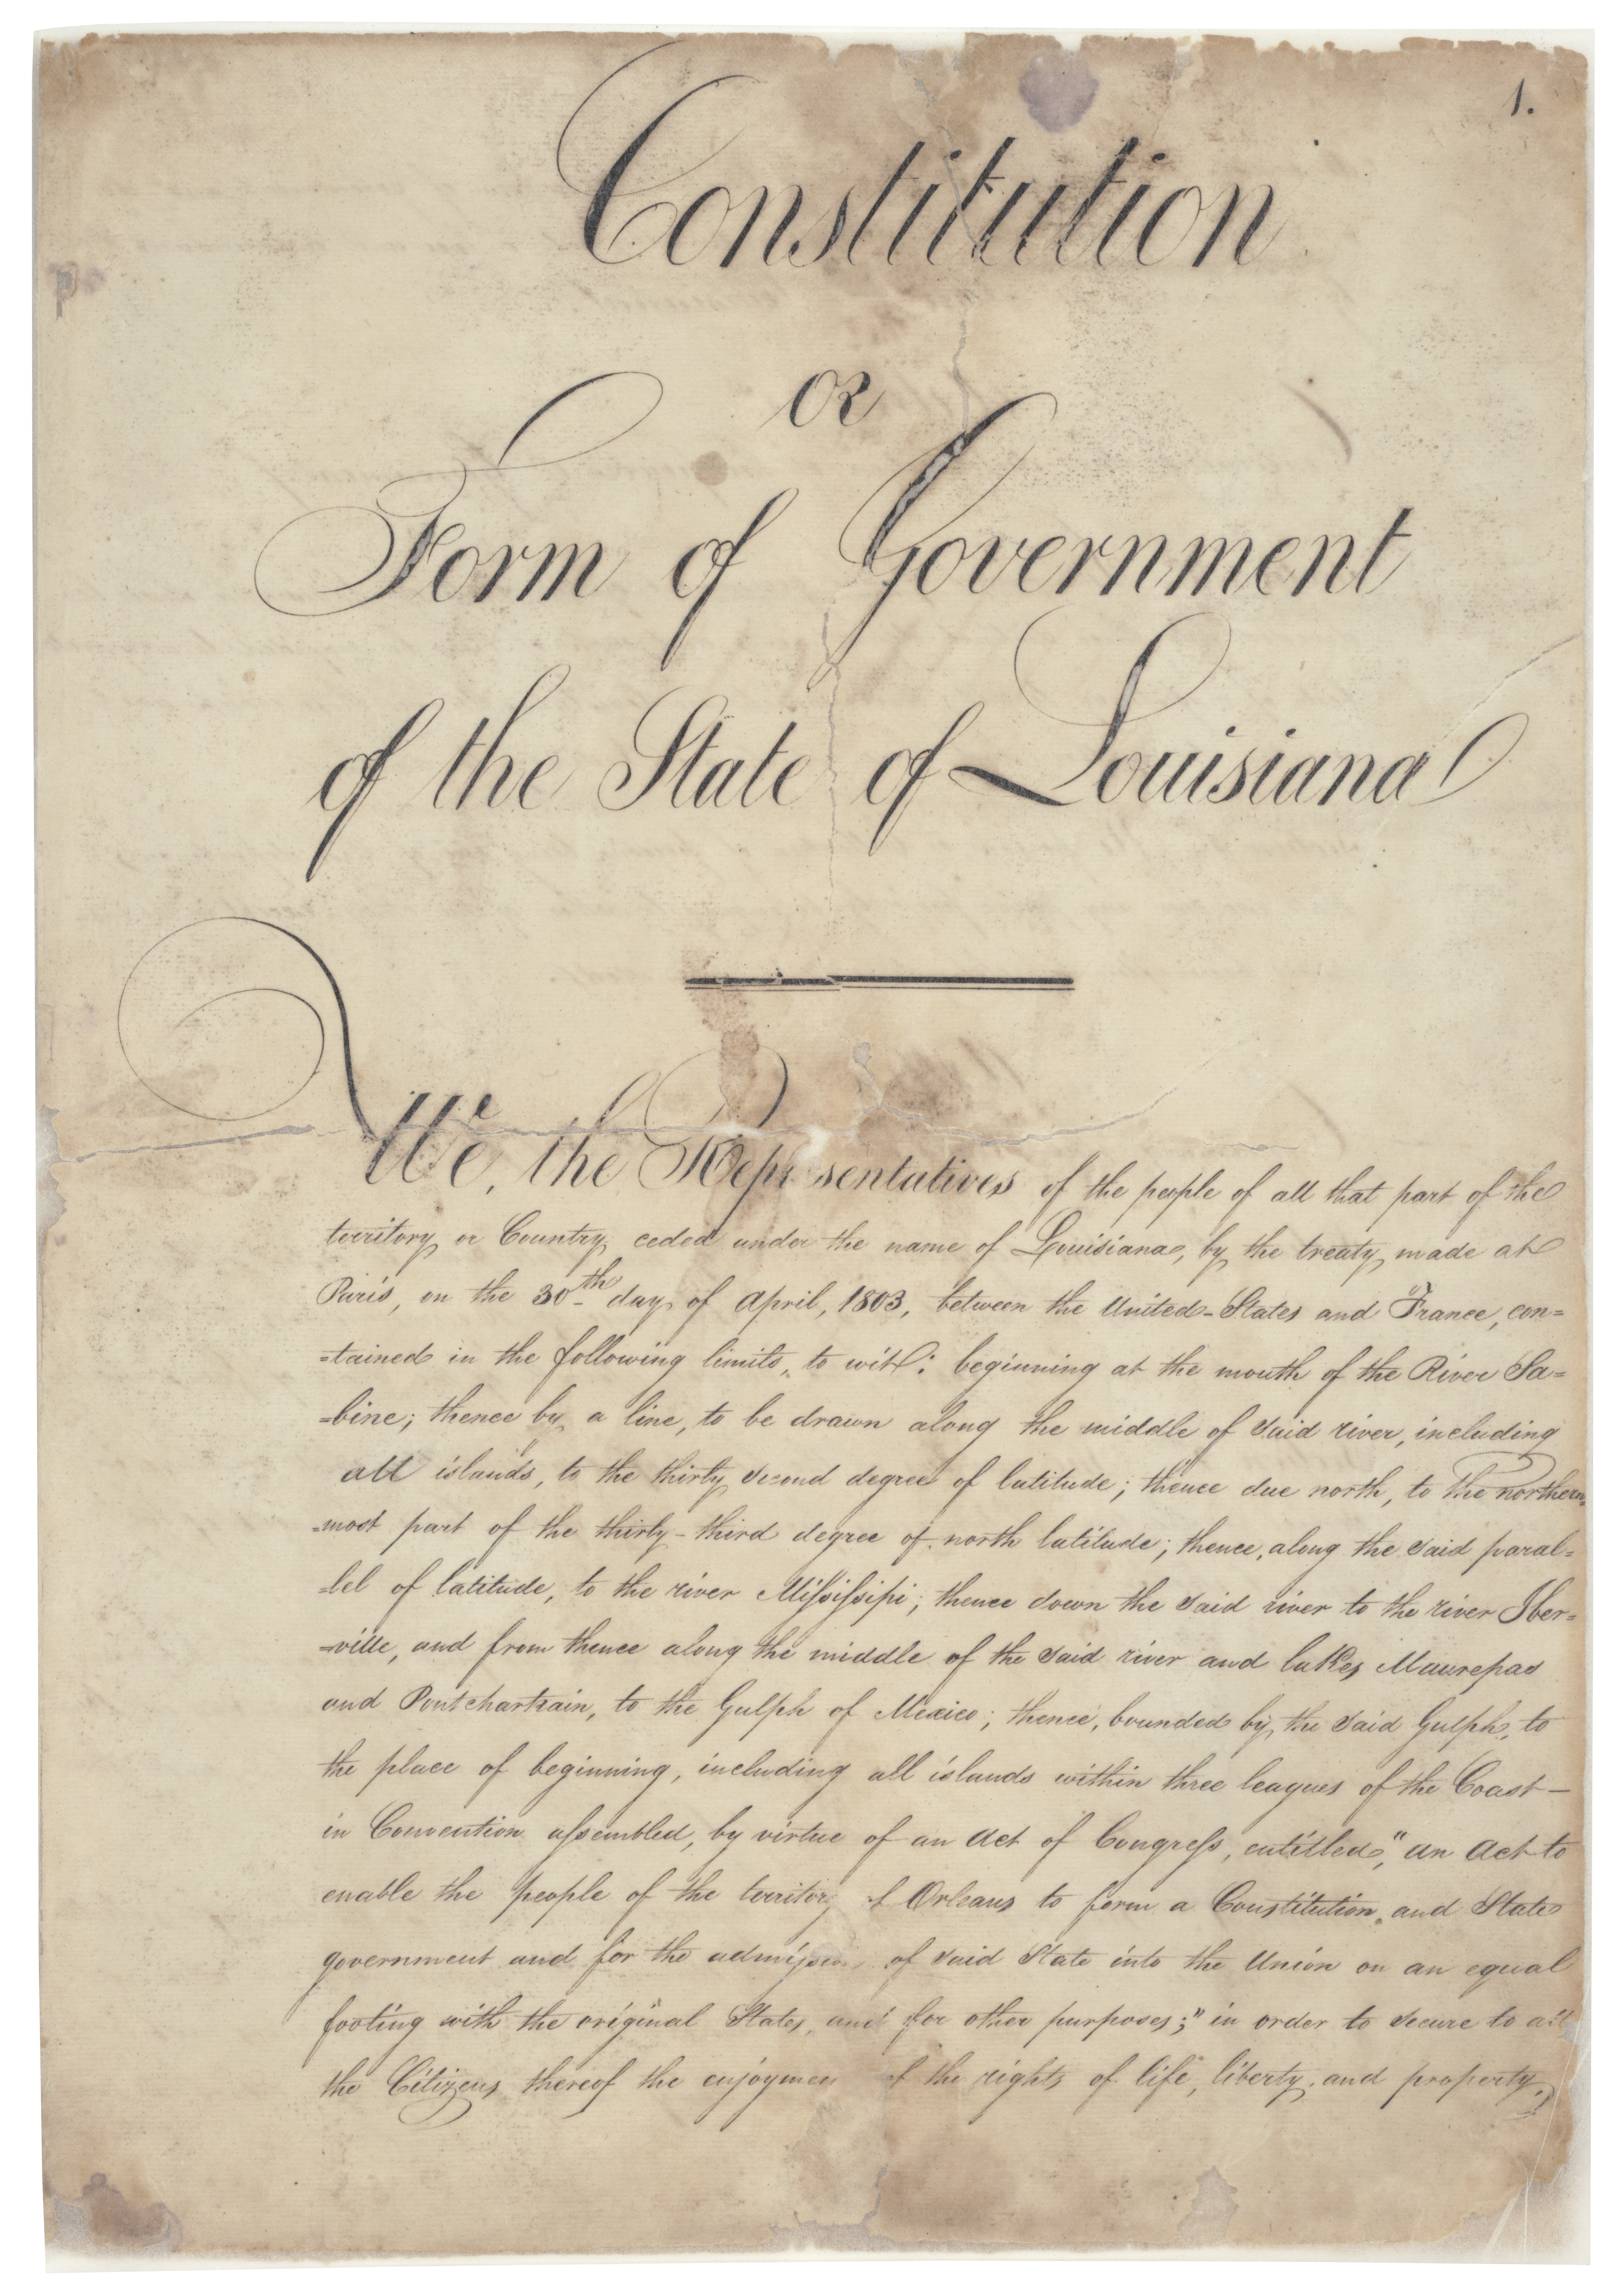 1.
Constitution
or
Form of Government
of the State of Louisiana
We, the Representatives of the people of all that part of the
territory or Country ceded under the name of Louisiana, by the treaty made at
Paris, on the 30th day of April, 1803, between the United-States and France, con=
=tained in the following limits, to wit: beginning at the mouth of the River Sa=
=bine; thence by a line, to be drawn along the middle of said river, including
all islands, to the thirty second degree of latitude; thence due north, to the northern
=most part of the thirty-third degree of north latitude; thence, along the said paral=
=lel of latitude, to the river Mississipi; thence down the said river to the river Iber=
=ville, and from thence along the middle of the said river and lakes Maurepas
and Pontchartrain, to the Gulph of Mexico; thence, bounded by the said Gulph, to
the place of beginning, including all islands within three leagues of the Coast—
in Convention assembled, by virtue of an Act of Congress, entitled, "an Act to
enable the people of the territory of Orleans to form a Constitution, and State
government and for the admission of said State into the Union on an equal
footing with the original States, and for other purposes;" in order to secure to all
the Citizens thereof the enjoymen of the rights of life, liberty, and property,